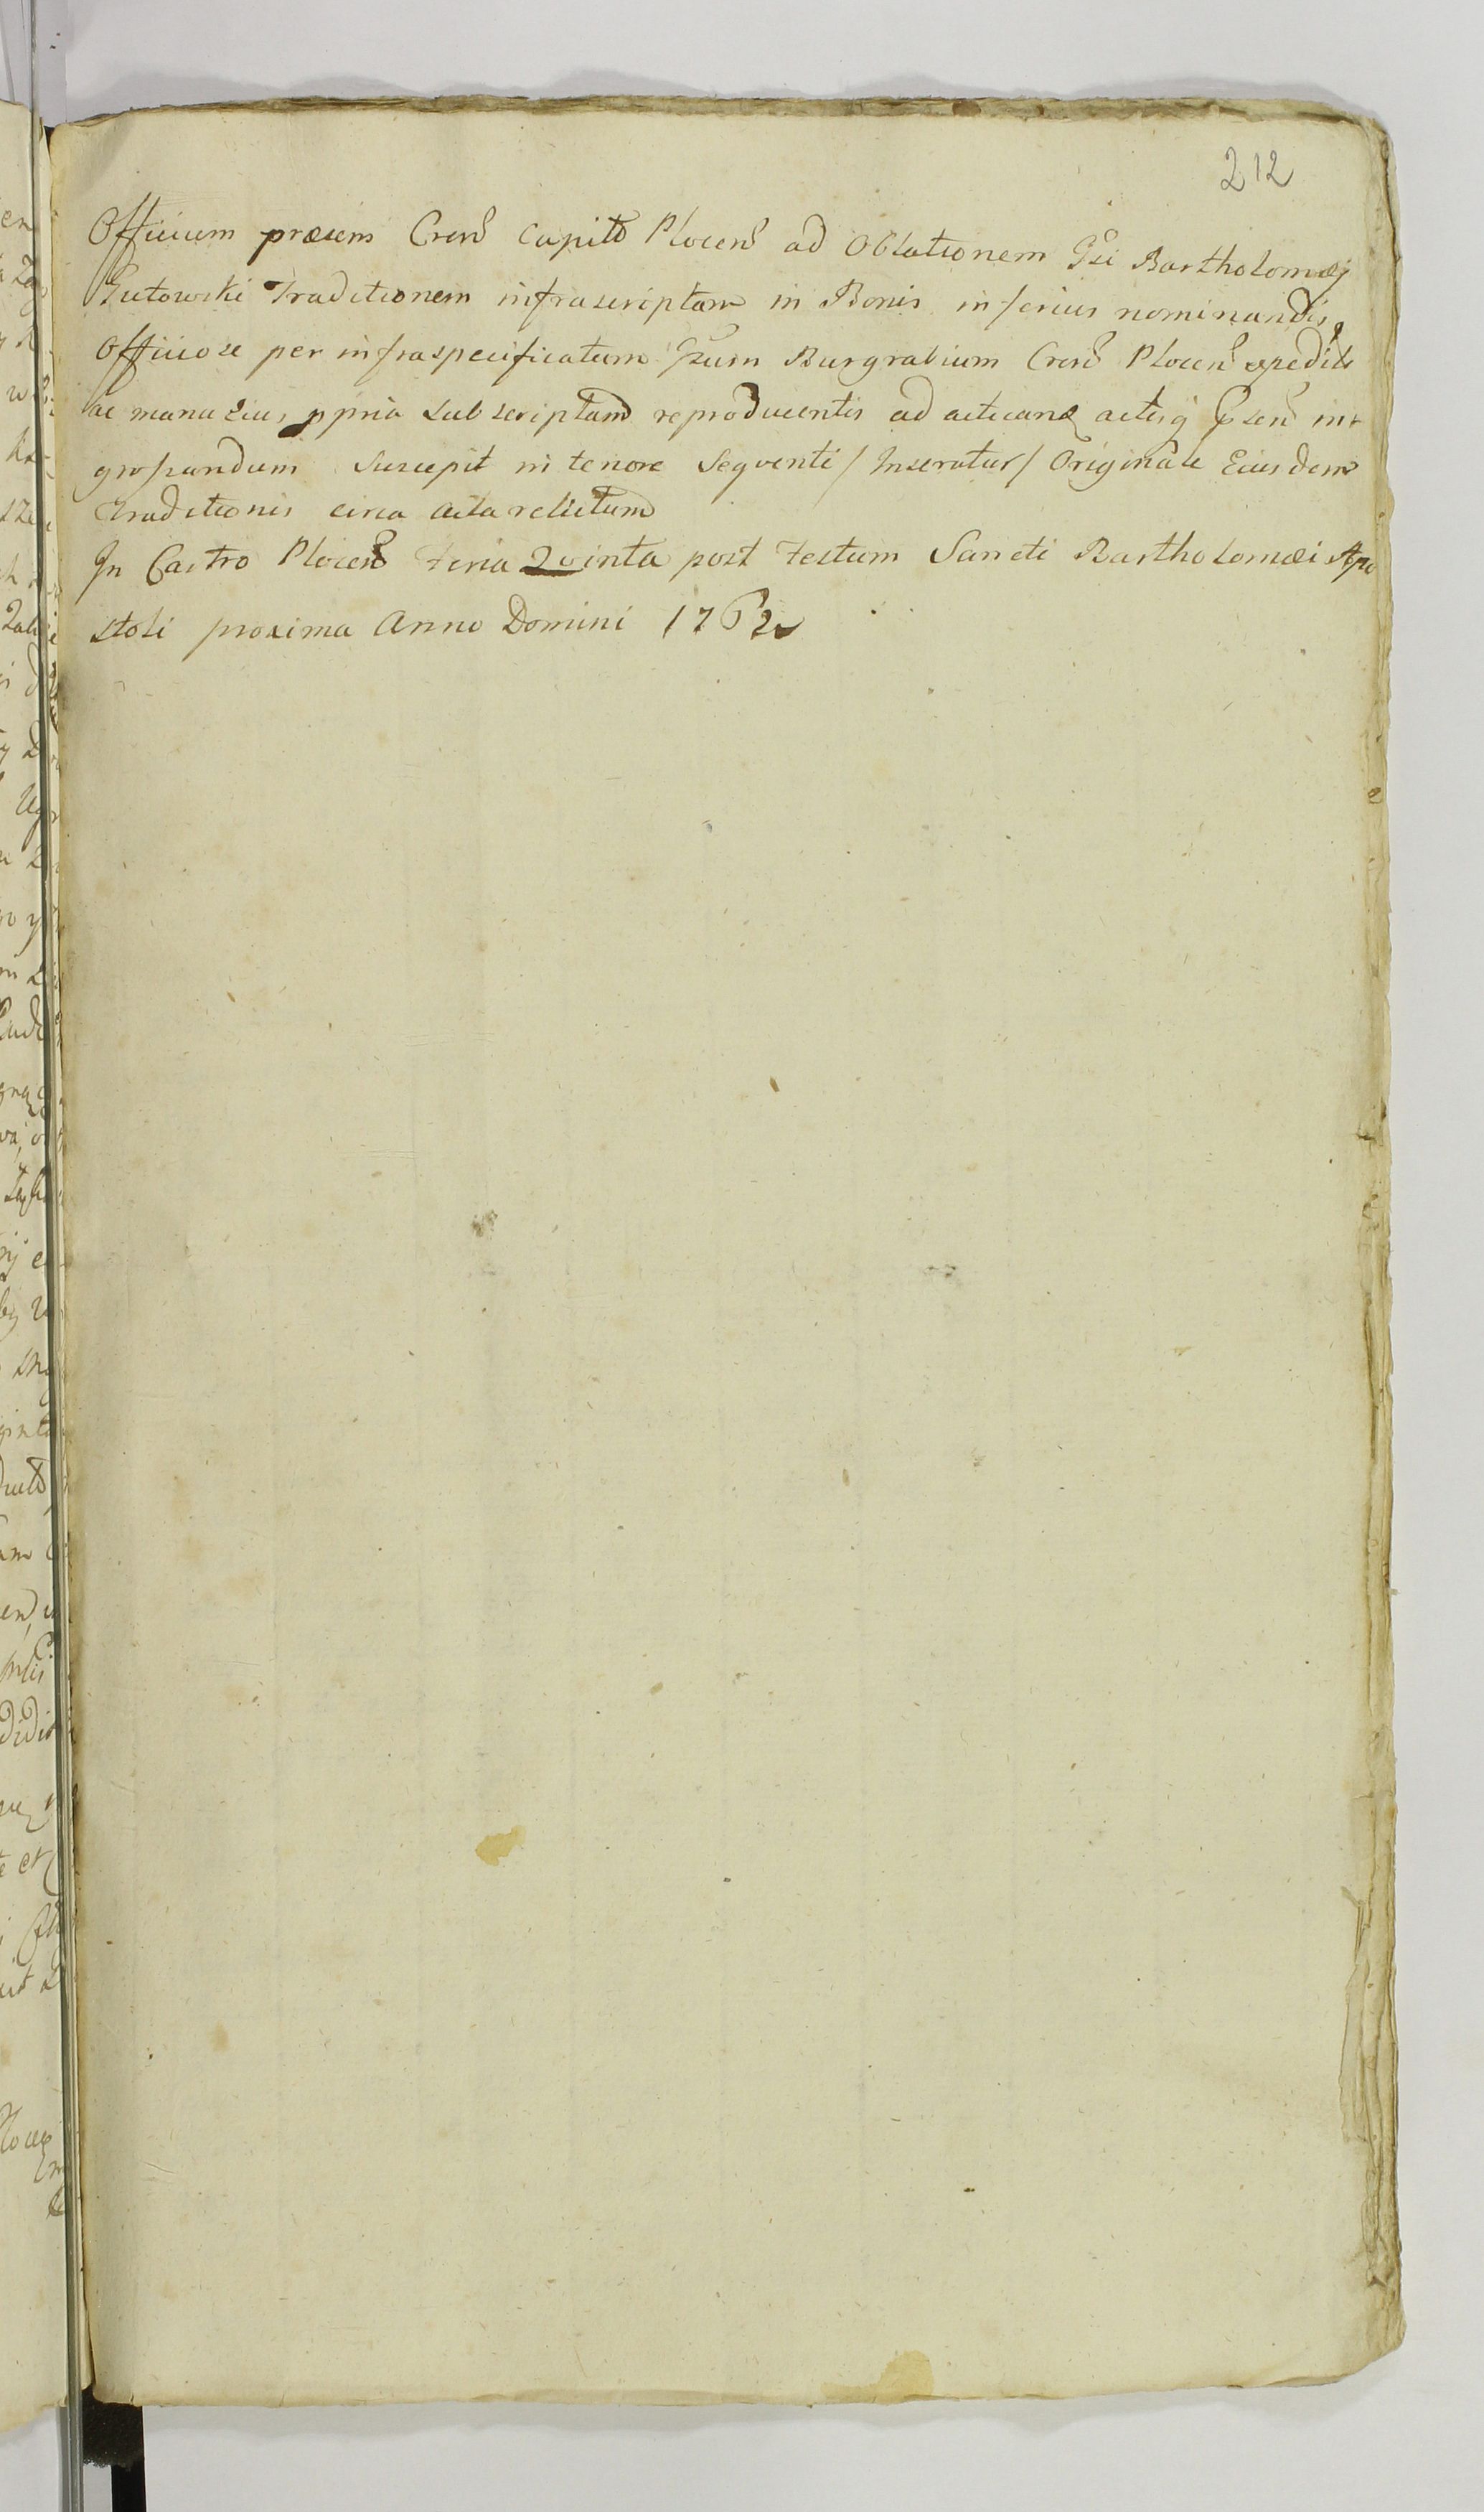 212
Officium præsens Cren̄ Capit̄o Plocen̄ ad Oblationem Gsi Bartholomæj
Gutowski Traditionem infrascriptam in Bonis inferius nominandis
Officiose per infraspecificatum Gsum Burgrabium Cren̄ Plocen̄ expedit
ac manu Eius ppria subscriptam reproducentis ad acticand actisq̨ psen̄ in
grossandum Suscepit in tenore Seqventi / Inseratur / Originale Eiusdem
Traditionis circa acta relictum
In Castro Plocen̄ Feria Qvinta post Festum Sancti Bartholomæi Apo
stoli proxima Anno Domini 1762